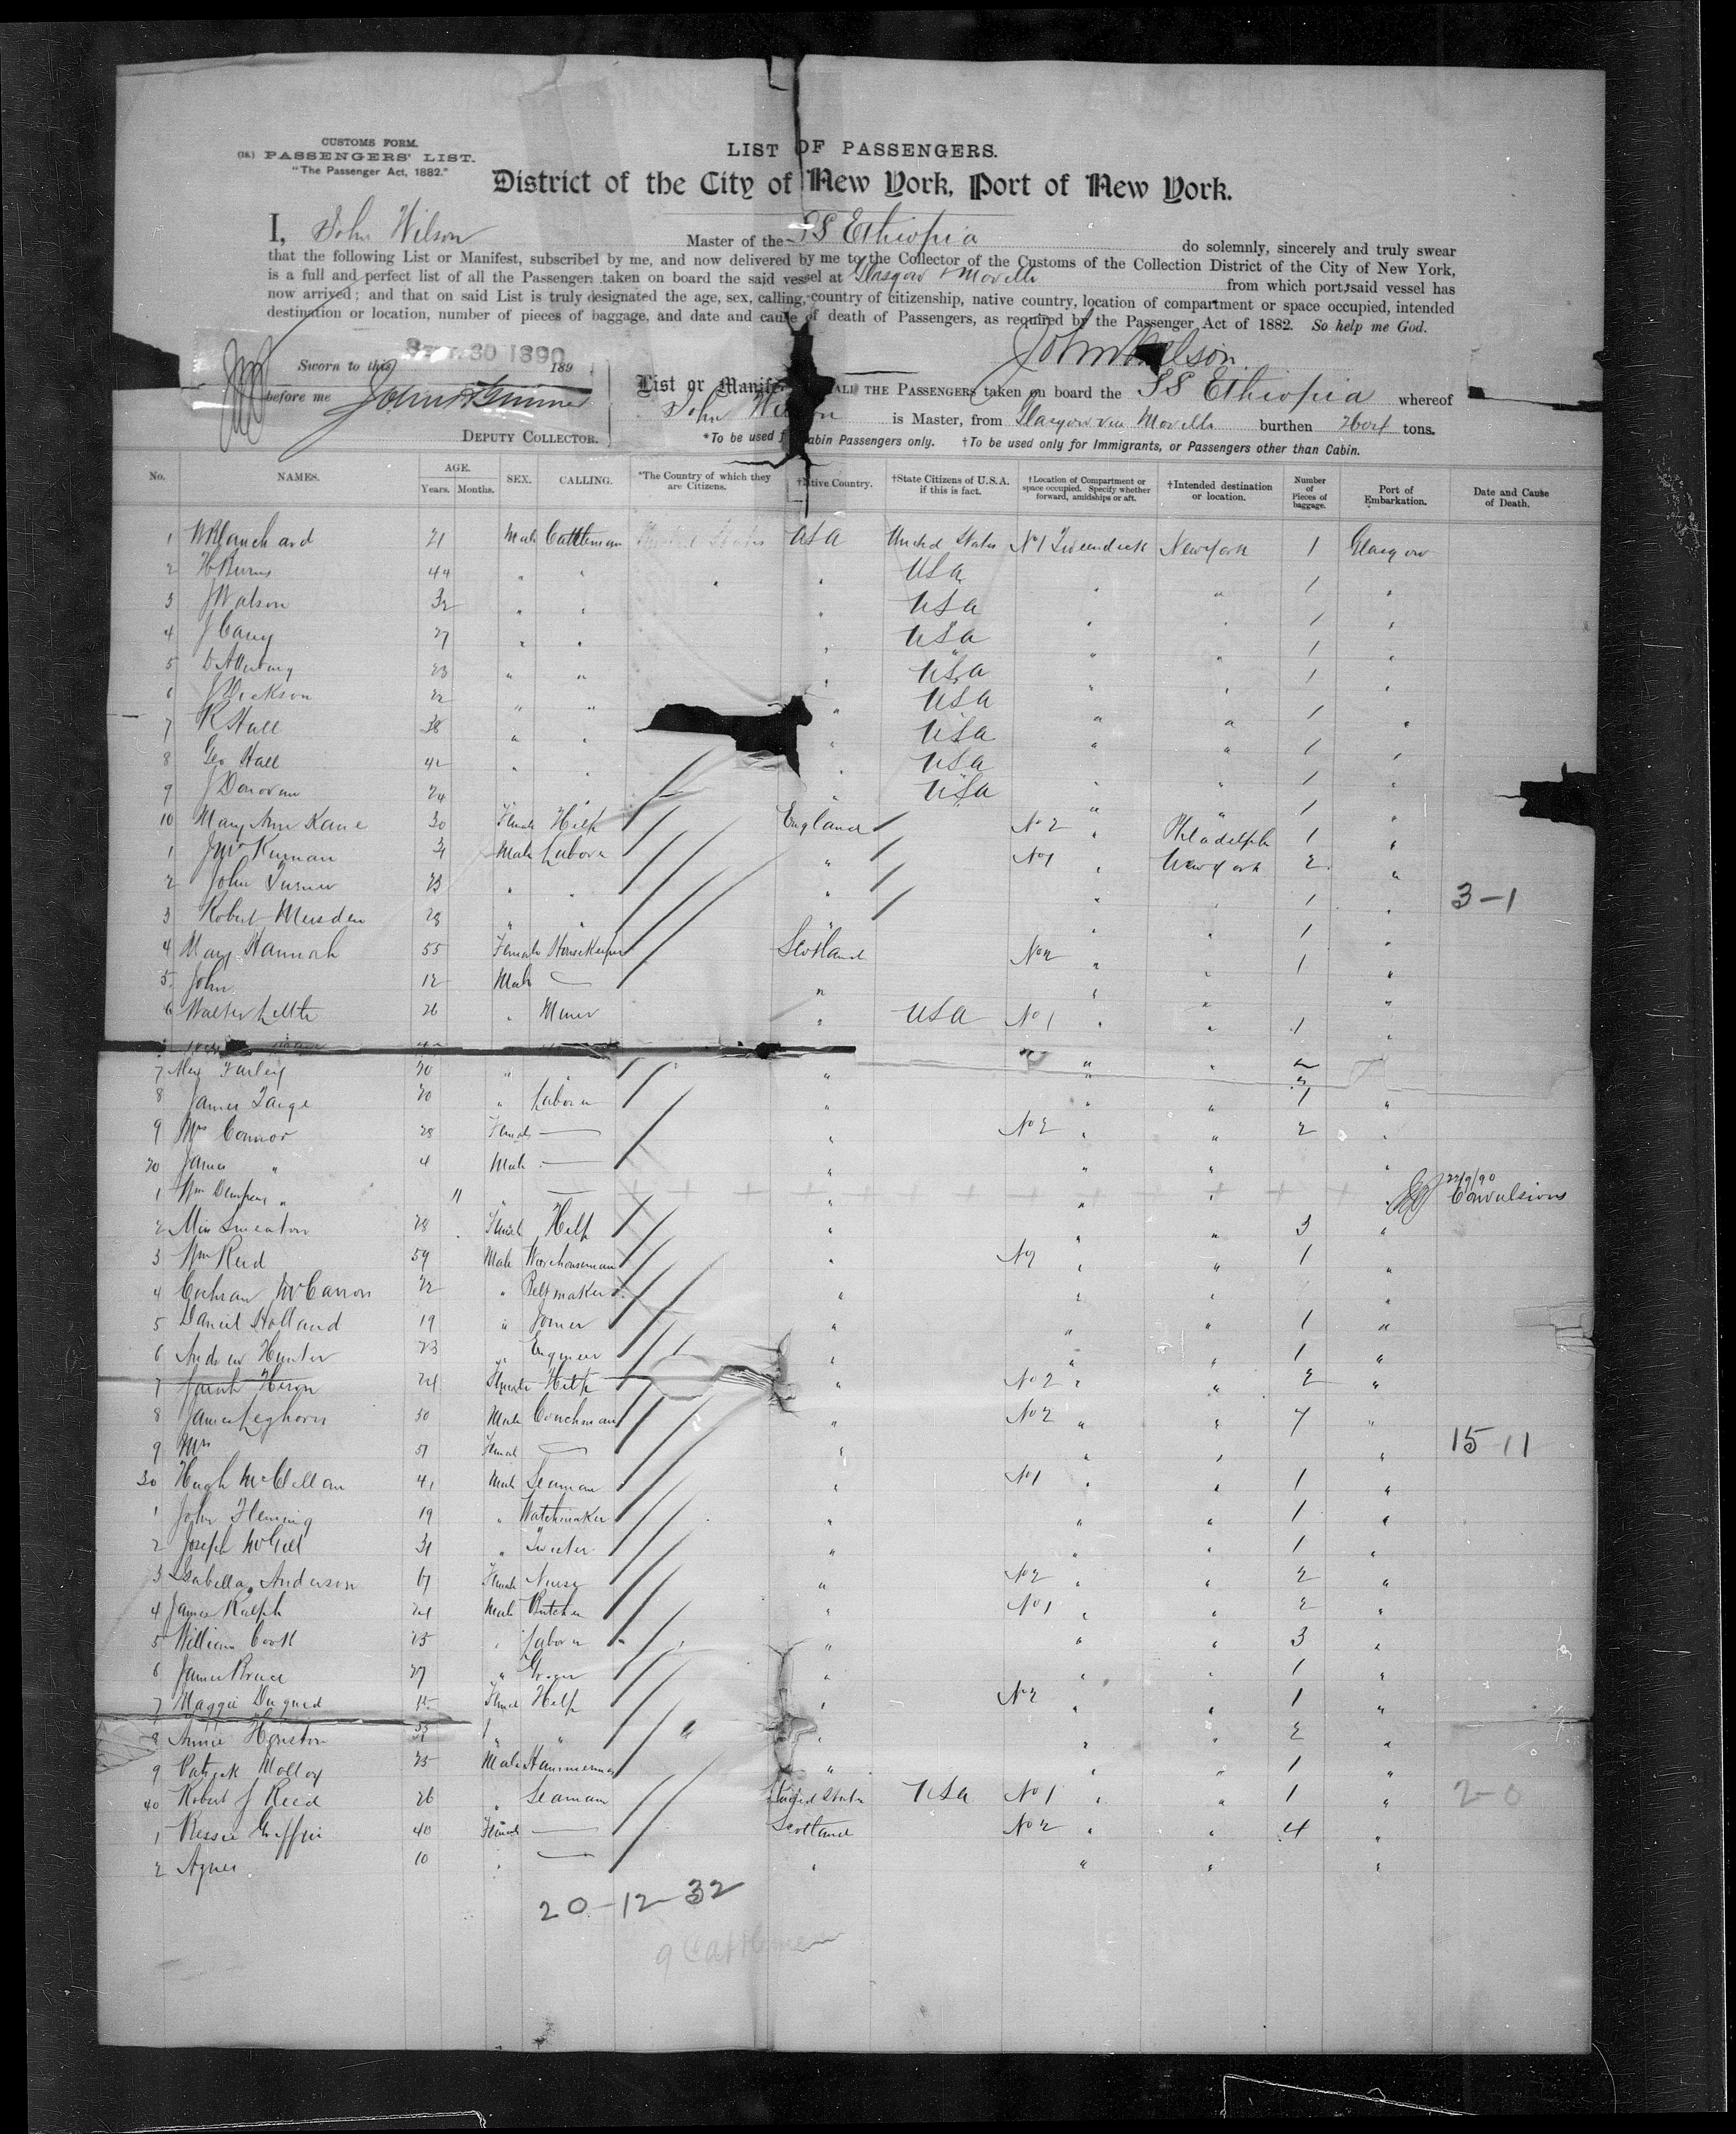 CUSTOMS FORM.
(18.) PASSENGERS' LIST.
"The Passenger Act, 1882."
LIST OF PASSENGERS.
District of the City of New York, Port of New York.
I, John Wilson Master of the SS Ethiopia do solemnly, sincerely and truly swear
that the following List or Manifest, subscribed by me, and now delivered by me to the Collector of the Customs of the Collection District of the City of New York,
is a full and perfect list of all the Passengers taken on board the said vessel at Glasgow & Moville from which port said vessel has
now arrived; and that on said List is truly designated the age, sex, calling, country of citizenship, native country, location of compartment or space occupied, intended
destination or location, number of pieces of baggage, and date and cause of death of Passengers, as required by the Passenger Act of 1882. So help me God.
John Wilson
Sworn to this SEP 30 1890 189
before me
DEPUTY COLLECTOR.
List or Manifest ALL THE PASSENGERS taken on board the SS Ethiopia whereof
John Wilson is Master, from Glasgow via Moville burthen tons.
*To be used f Cabin Passengers only. †To be used only for Immigrants, or Passengers other than Cabin.
No. NAMES. AGE. Years. Months. SEX. CALLING. *The Country of which they are Citizens. †Native Country. †State Citizens of U.S.A. if this is fact. †Location of Compartment or space occupied. Specify whether forward, amidships or aft. †Intended destination or location. Number of Pieces of baggage. Port of Embarkation. Date and Cause of Death.
1 W Blanchard 21 Male Cattleman United States USA United States No 1 Tweendeck New York 1 Glasgow
2 H Burns 44 " " " " USA " " 1 "
3 J Watson 32 " " " USA " " 1 "
4 J Cary 27 " " " USA " " 1 "
5 23 " " " USA " " 1 "
6 J Dickson 22 " " " USA " " 1 "
7 R Hall 38 " " " USA " " 1 "
8 Geo Hall 42 " " " USA " " 1 "
9 J Donovan 24 " " " USA " " 1 "
10 Mary Ann Kane 30 Female Help England No 2 " Philadelph 1 "
1 Male Labor " No 1 " New York 2 "
2 John Turner 23 " " " " " 1 "
3 Robert Mursden 28 " " " " " 1 " 3-1
4 Mary Hannah 55 Female Housekeeper Scotland No 2 " " 1 "
5 John 12 Male — " " " "
6 Walter Little 26 " Miner " USA No 1 " " 1 "
7 Farley 20 " " " " " 2
8 James 20 " Labor " " " 1 "
9 Mrs Connor 28 Female — " No 2 " " 2 "
20 James " 4 Male — " " " "
1 Wm " 11 " — " " " " 22/9/90 Convulsions
2 Miss Smeaton 28 Female Help " " " 3 "
3 Wm Reid 59 Male Warehouseman " No 1 " " 1 "
4 Cochran McCarron 22 " Beltmaker " " " "
5 Daniel Holland 19 " Joiner " " " 1 "
6 Andrew Hunter 23 " Engineer " " " 1 "
7 Sarah Heron 24 Female Help " No 2 " " 2 "
8 James Leghorn 50 Male Coachman " No 2 " " 7 "
9 Mrs 51 Female — " " " " 15-11
30 Hugh McClellan 41 Male Seaman " No 1 " " 1 "
1 John Fleming 19 " Watchmaker " " " 1 "
2 Joseph McGill 31 " " " " 1 "
3 Isabella Anderson 17 Female Nurse " No 2 " " 2 "
4 James Ralph 24 Male Butcher " No 1 " " 2 "
5 William Cook 25 " Labor " " " 3 "
6 James Bruce 27 " Grocer " " " 1 "
7 Maggie Duguid Female Help " No 2 " " 1 "
8 Annie Houston " " " " " 2 "
9 Patrick Molloy 25 Male Hammerman " " " 1 "
40 Robert J Reid 26 " Seaman United States USA No 1 " " 1 " 2-0
1 Bessie Griffin 40 Female — Scotland No 2 " " 4 "
2 Agnes 10 " — " " " "
20-12-32
9 Cattlemen